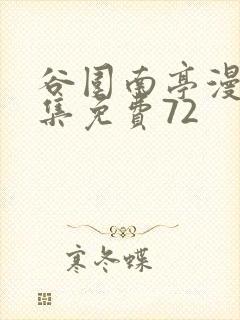 谷围南亭漫
集免費72
寒冬蝶